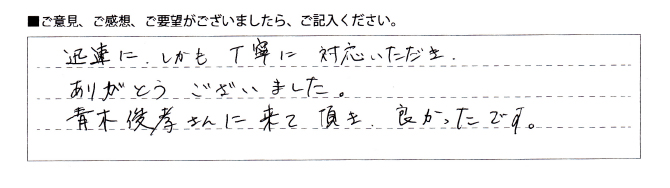 ■ご意見、ご感想、ご要望がございましたら、ご記入ください。
迅速に、しかも丁寧に対応いただき、
ありがとうございました。
青木俊孝さんに来て頂き、良かったです。